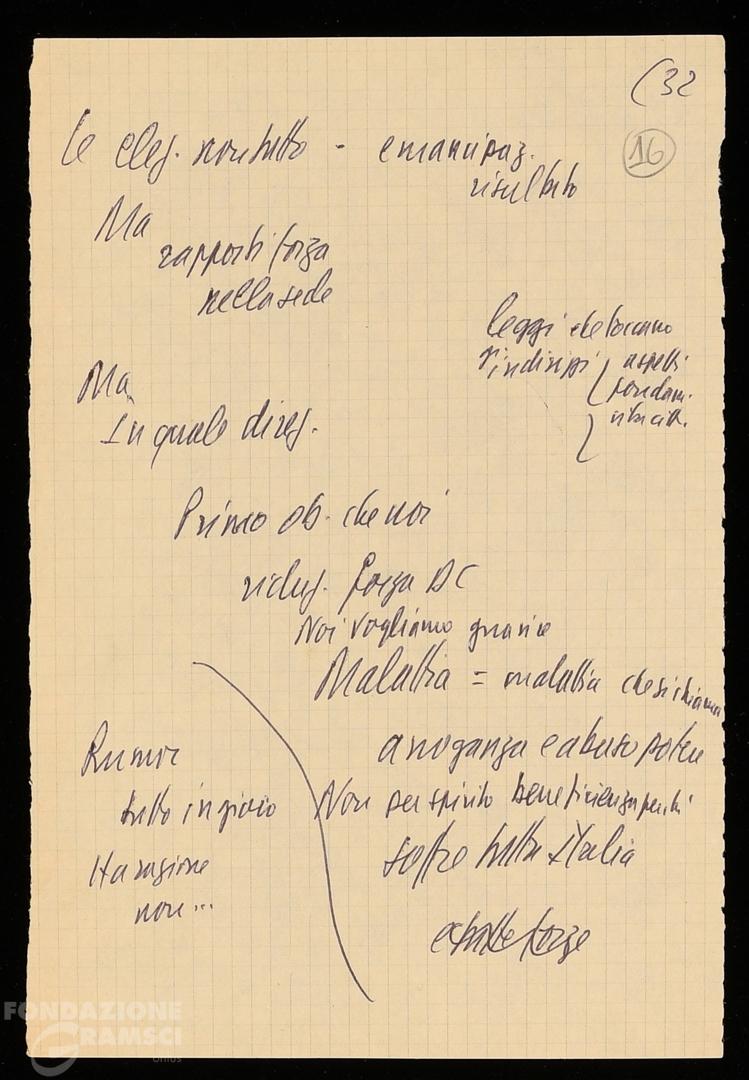 (32
16
le elez. non tutto - emancipaz.
risultato
Ma
rapporti forza
nella sede
leggi che toccano
aspetti
fondam.
Ma
In quale direz.
Primo ob. che noi
riduz. forza DC
Noi vogliamo guarire
Malattia = malattia che si chiama
arroganza e abuso potere
Rumor
tutto in gioco
Non per spirito beneficienza perché
soffre tutta Italia
Ha ragione
non...
FONDAZIONE
GRAMSCI
onlus